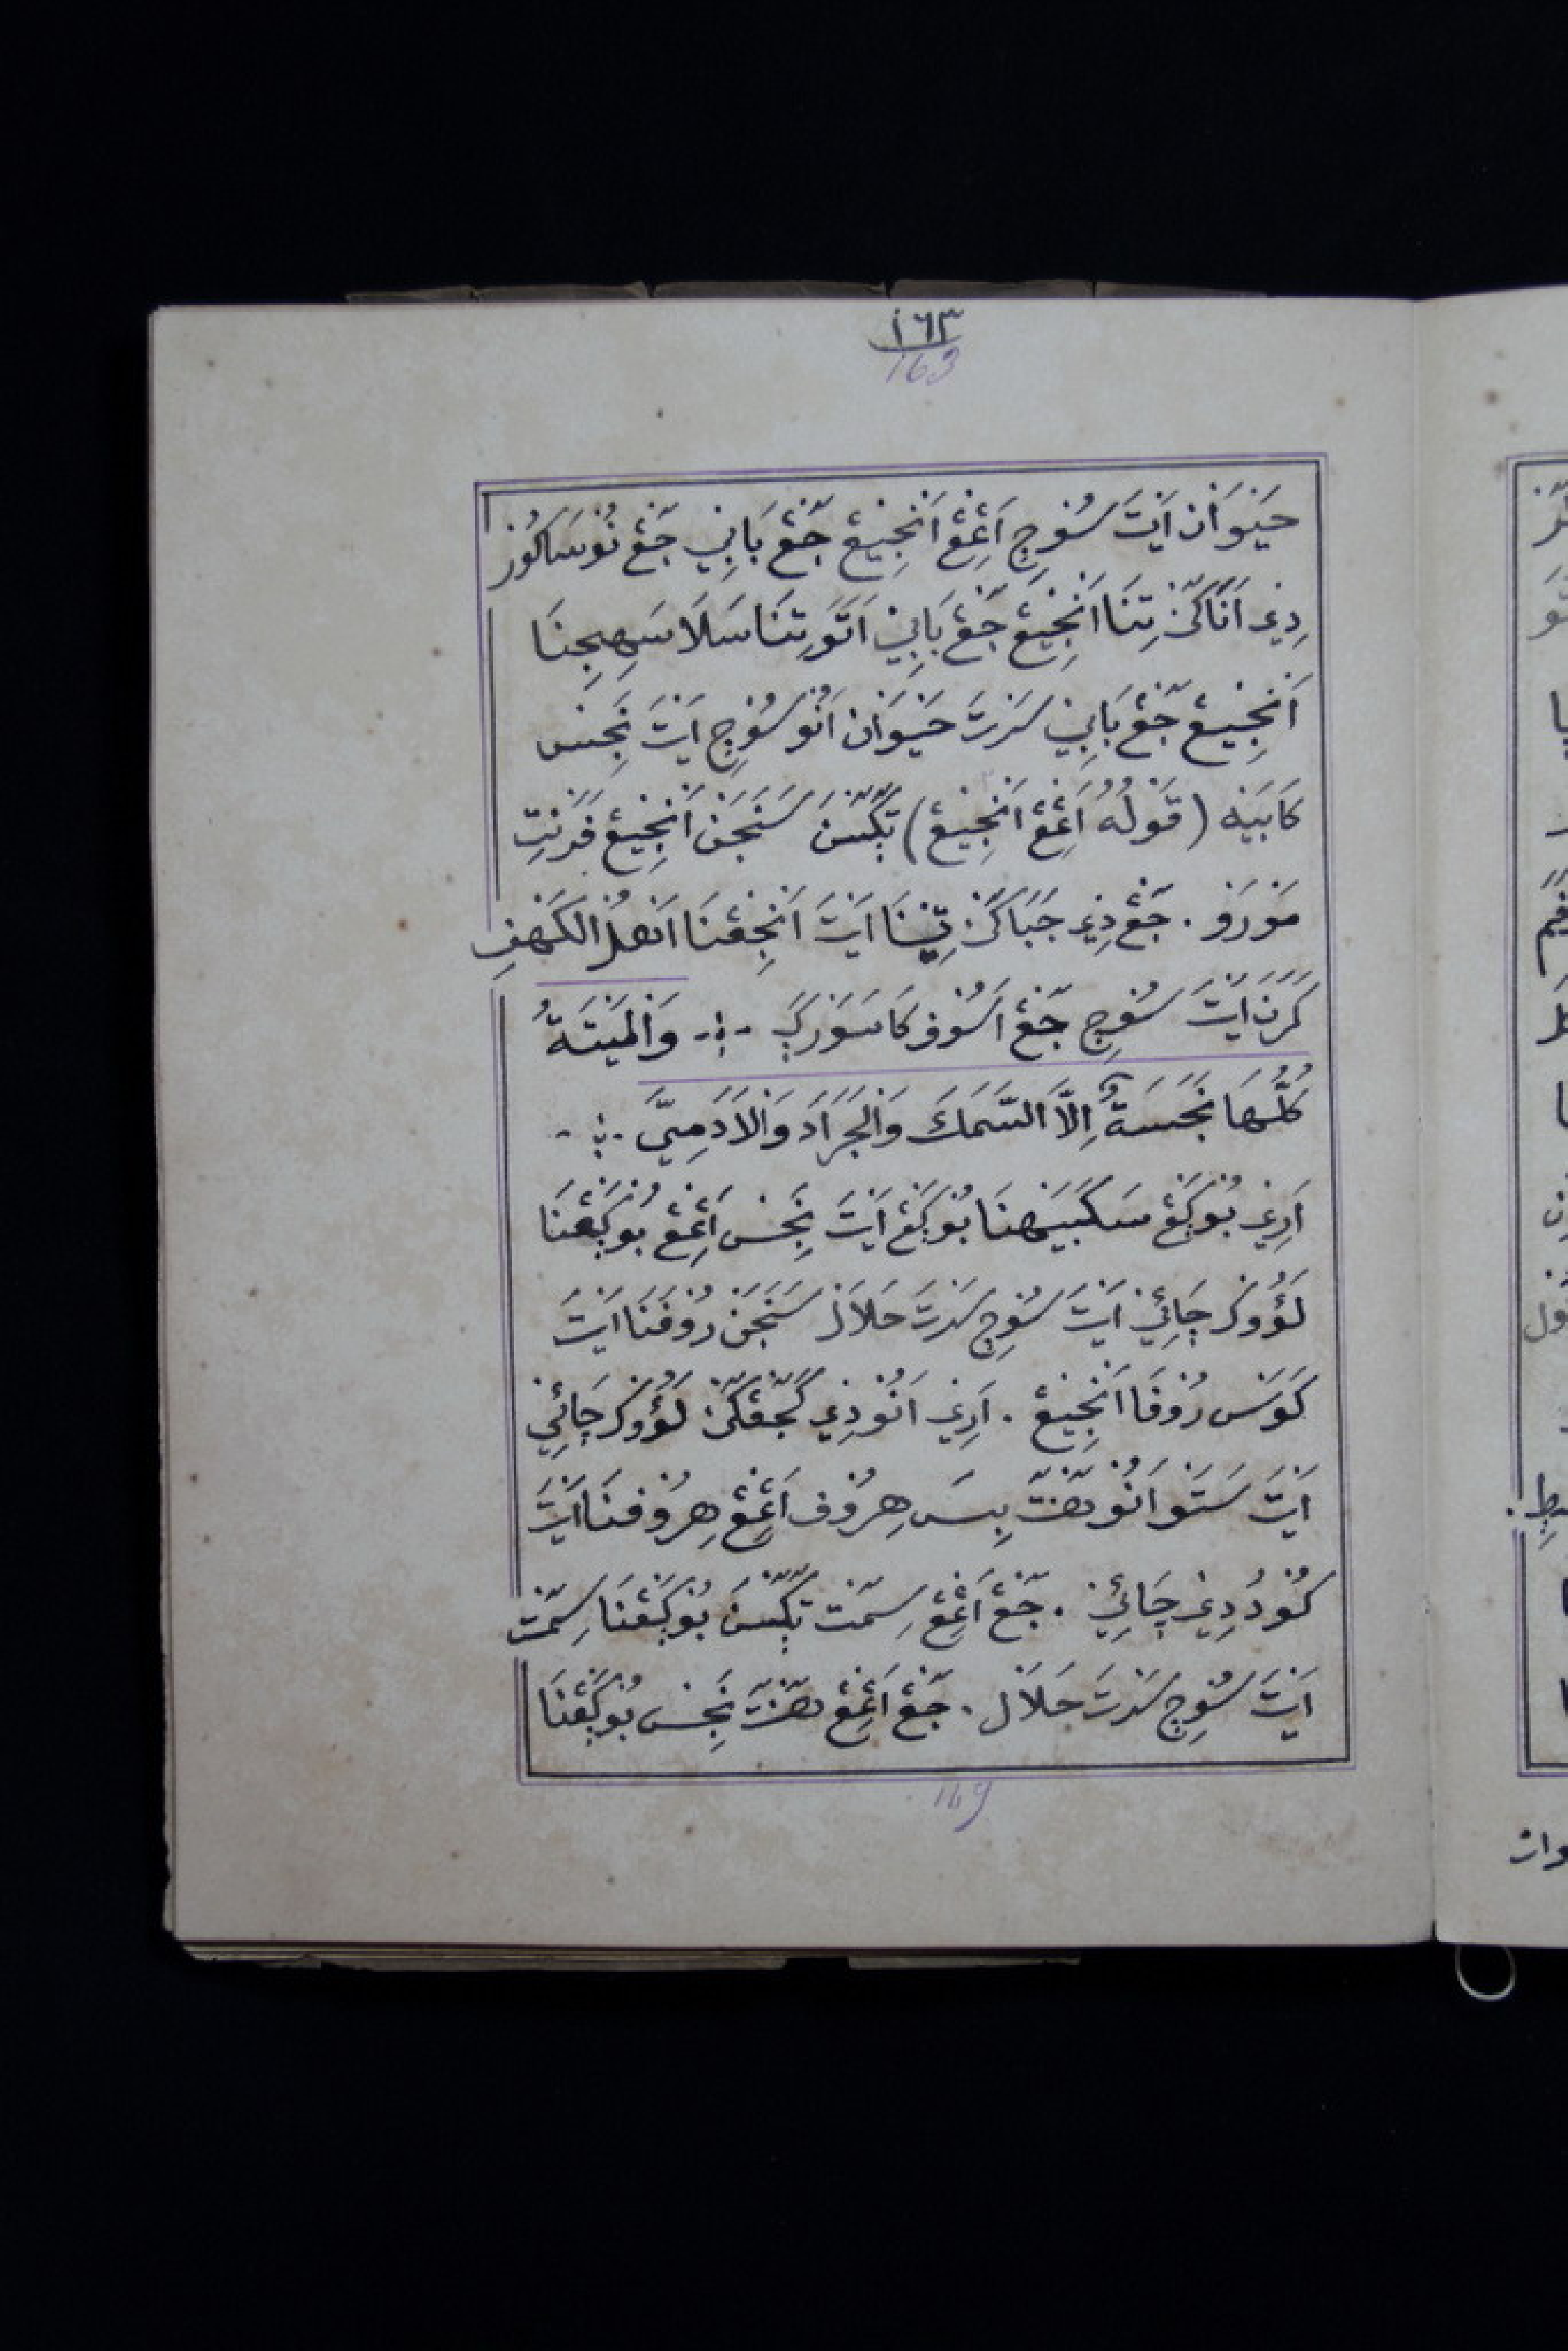 ١٦٣
163
حَيَوَانْ اَيْتَ سُوْچِ اَڠِڠْ اَنْجِيْڠْ جَڠْ بَابِيْ جَڠْ نُوْسَاكُوْرْ
دِيْ اَنَاكَنْ تِنَا اَنْجِيْڠْ جَڠْ بَابِيْ اَتَوَ تِنَا سَلَا سَهِيْجِنَا
اَنْجِيْڠْ جَڠْ بَابِيْ سَرَتَ حَيَوَانْ اَنُوْ سُوْچِ اَيْتَ نَجِسْ
كَابَيَهْ (قَوْلُهُ اَڠِڠْ اَنْجِيْڠْ) تَڮَّسْنَ سَنَجَنْ اَنْجِيْڠْ فَرَنْتِ
مَوْرَوْ . جَڠْ دِيْ جَبَاكَنْ تِيْنَا اَيْتَ اَنْجِڠْنَا اَصْلُ الْكَهْفِ
كَرَنَ اَيْتَ سُوْچِ جَڠْ اَسُوْفْ كَا سَوَرْڮَ وَالْمَيْتَةُ
كُلُّهَا نَجَسَةٌ اِلَّا السَّمَكَ وَالْجَرَادَ وَالْاٰدَمِيَّ
اَرِيْ بُوْڮَڠْ سَكَبَيَهْنَا بُوْڮَڠْ اَيْتَ نَجِسْ اَڠِڠْ بُوْڮَڠْنَا
لَؤُوْكْ چَائِيْ اَيْتَ سُوْچِ سَرَتَ حَلَالْ سَنَجَنْ رُوْفَنَا اَيْتَ
كَوَسْ رُوْفَا اَنْجِيْڠْ . اَرِيْ اَنُوْ دِيْ كَجَڠْكَنْ لَؤُوْكْ چَائِيْ
اَيْتَ سَتَوْ اَنُوْ هَنْتَ بِسَ هِرُوْفْ اَڠِڠْ هِرُوْفْنَا اَيْتَ
كُوْدُ دِيْ چَائِيْ . جَڠْ اَڠِڠْ سِمَتْ تَڮَّسْنَ بُوْڮَڠْنَا سِمَتْ
اَيْتَ سُوْچِ سَرَتَ حَلَالْ . جَڠْ اَڠِڠْ هَنْتَ نَجِسْ بُوْڮَڠْنَا